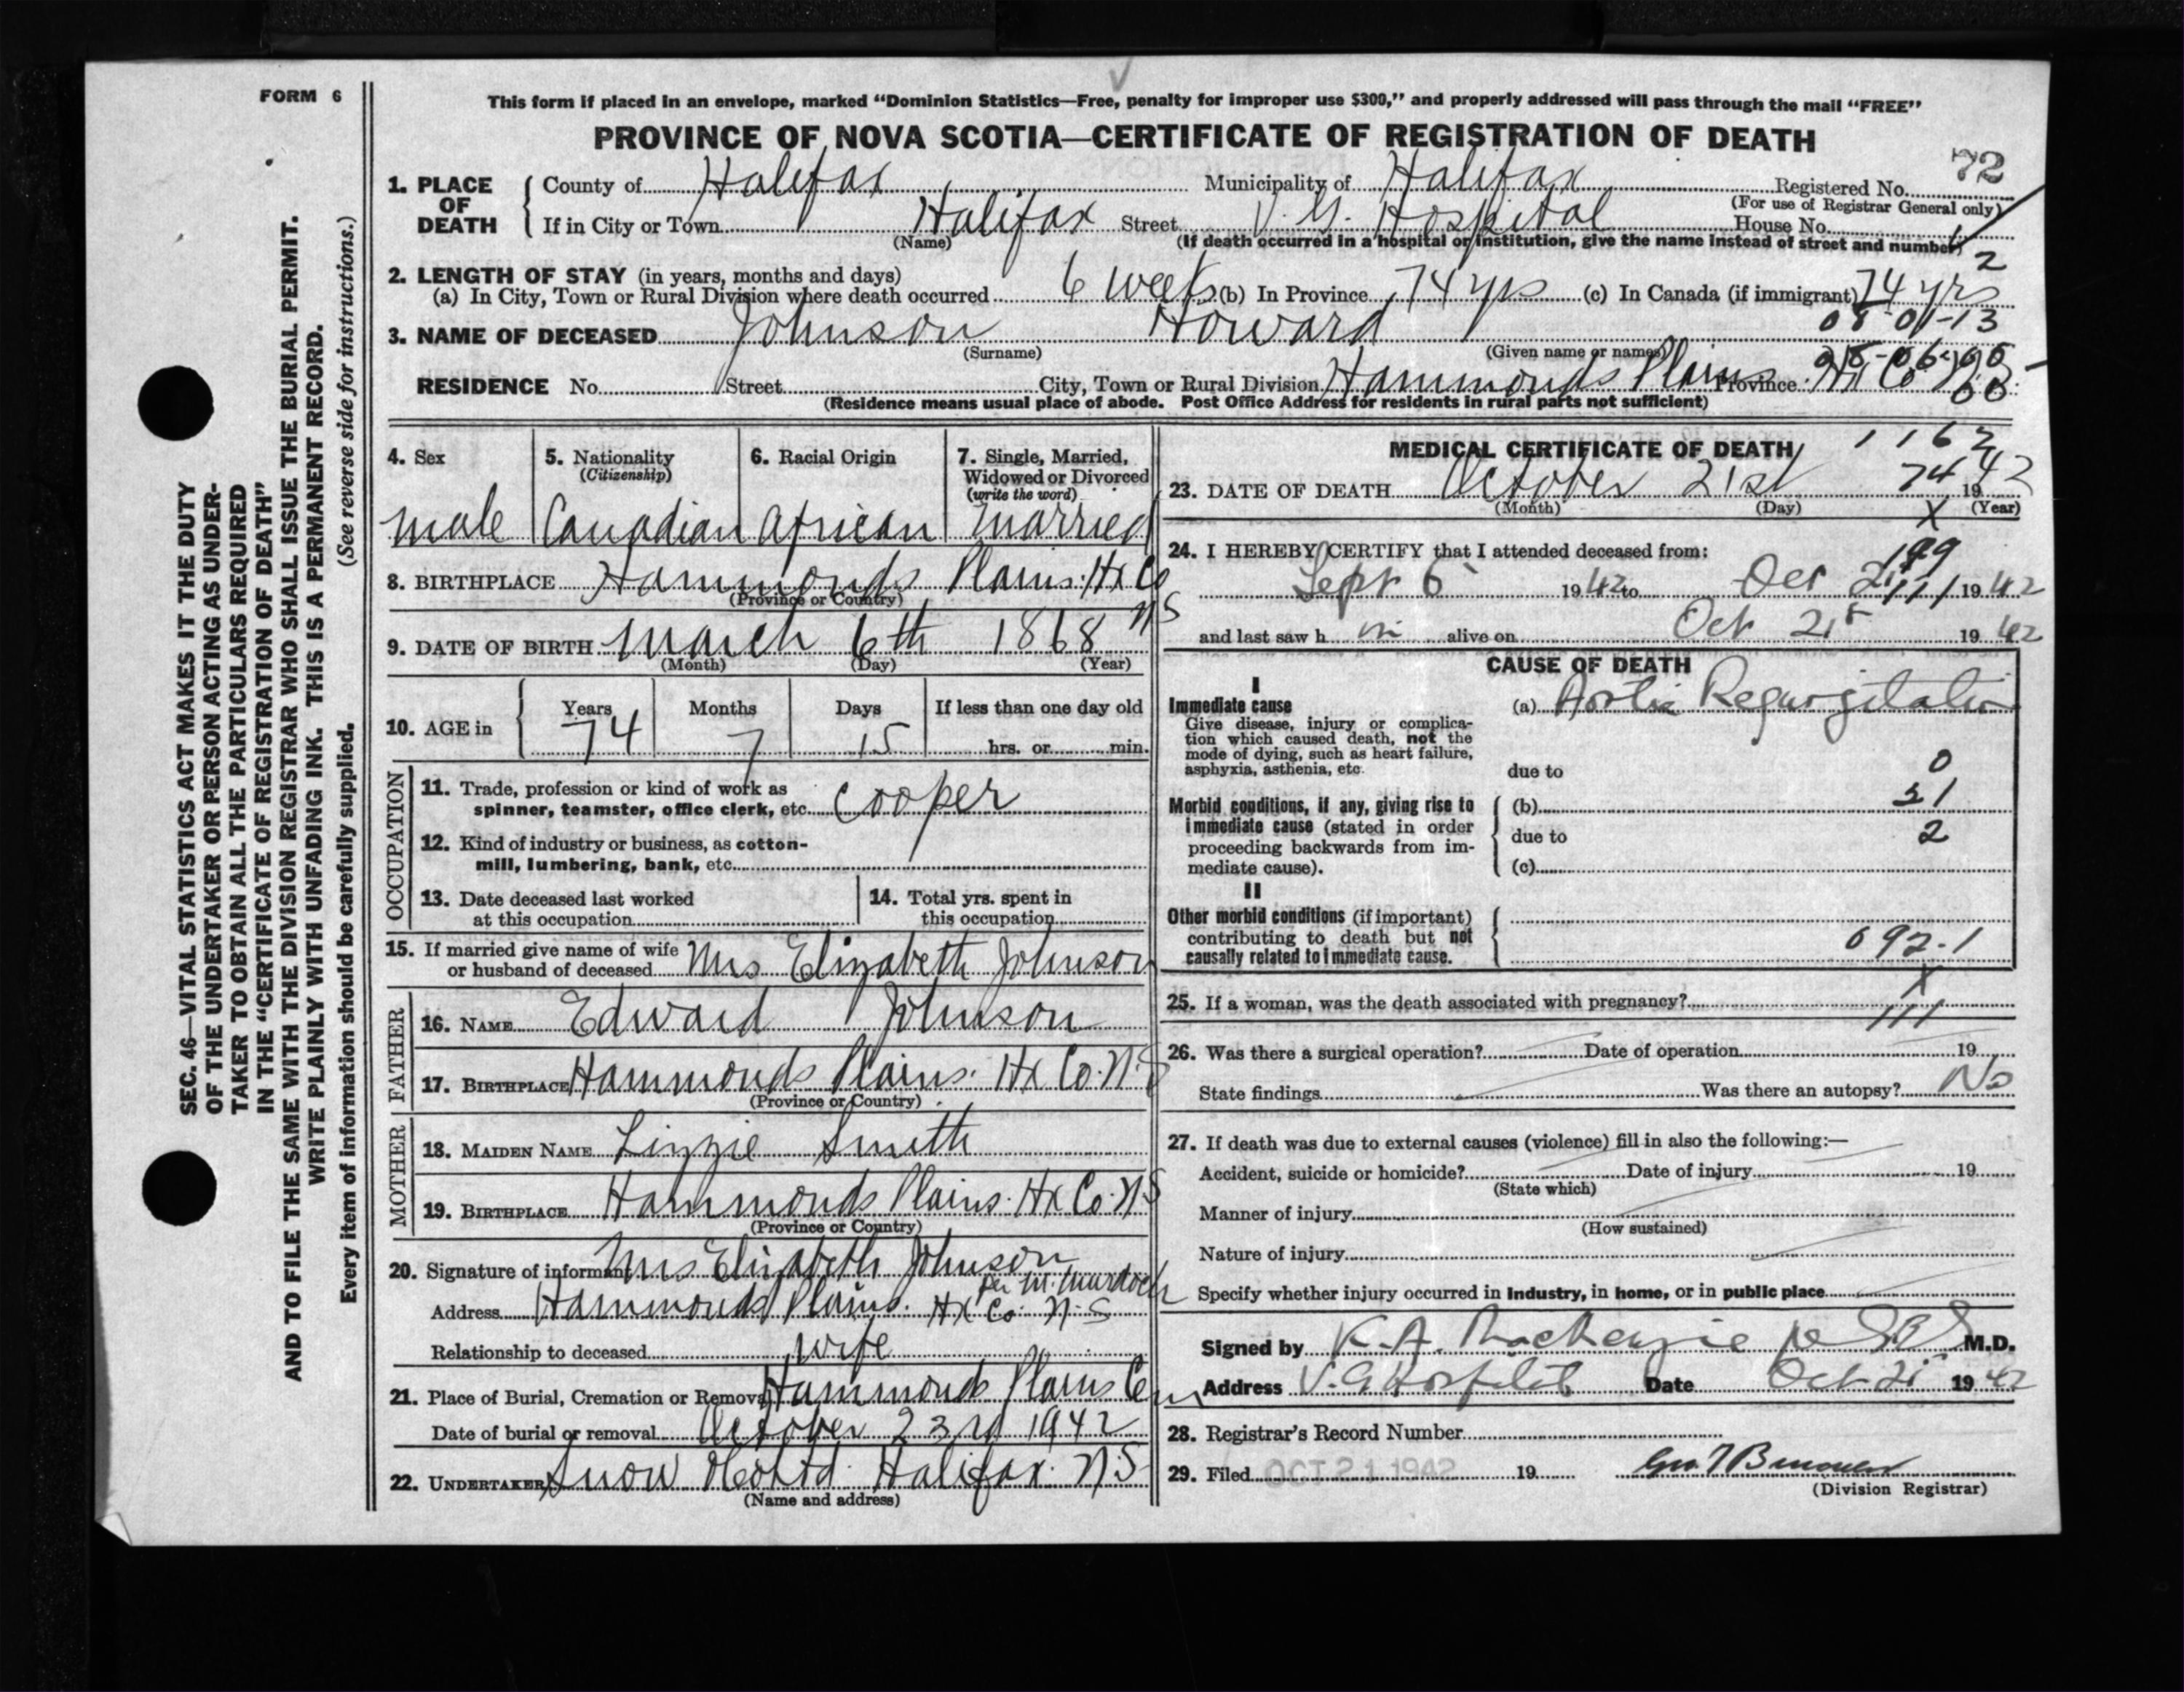 FORM 6
This form if placed in an envelope, marked "Dominion Statistics—Free, penalty for improper use $300," and properly addressed will pass through the mail "FREE"
PROVINCE OF NOVA SCOTIA—CERTIFICATE OF REGISTRATION OF DEATH
72
1. PLACE OF DEATH
County of Halifax Municipality of Halifax Registered No.
(For use of Registrar General only)
If in City or Town Halifax Street V. G. Hospital House No.
(Name) (If death occurred in a hospital or institution, give the name instead of street and number)
2
2. LENGTH OF STAY (in years, months and days)
(a) In City, Town or Rural Division where death occurred 6 weeks (b) In Province 74 yrs (c) In Canada (if immigrant) 74 yrs
08-01-13
3. NAME OF DECEASED Johnson Howard
(Surname) (Given name or names)
RESIDENCE No. Street City, Town or Rural Division Hammonds Plains Province Hx Co
(Residence means usual place of abode. Post Office Address for residents in rural parts not sufficient)
4. Sex
male
5. Nationality
(Citizenship)
Canadian
6. Racial Origin
African
7. Single, Married,
Widowed or Divorced
(write the word)
Married
8. BIRTHPLACE Hammonds Plains. Hx Co
(Province or Country)
NS
9. DATE OF BIRTH March 6th 1868
(Month) (Day) (Year)
10. AGE in
Years Months Days If less than one day old
74 7 15 hrs. or min.
OCCUPATION
11. Trade, profession or kind of work as
spinner, teamster, office clerk, etc. Cooper
12. Kind of industry or business, as cotton-
mill, lumbering, bank, etc.
13. Date deceased last worked
at this occupation
14. Total yrs. spent in
this occupation
15. If married give name of wife
or husband of deceased Mrs Elizabeth Johnson
FATHER
16. NAME Edward Johnson
17. BIRTHPLACE Hammonds Plains. Hx Co. N.S
(Province or Country)
MOTHER
18. MAIDEN NAME Lizzie Smith
19. BIRTHPLACE Hammonds Plains. Hx Co. NS
(Province or Country)
20. Signature of informant Mrs Elizabeth Johnson
Per M. Murdoch
Address Hammonds Plains. Hx Co. N.S
Relationship to deceased wife
21. Place of Burial, Cremation or Removal Hammonds Plains Cem
Date of burial or removal October 23rd 1942
22. UNDERTAKER Snow & Co Ltd. Halifax. N.S.
(Name and address)
MEDICAL CERTIFICATE OF DEATH
1162
74
23. DATE OF DEATH October 21st 1942
(Month) (Day) (Year)
X
24. I HEREBY CERTIFY that I attended deceased from:
199
Sept 6 1942 to Oct 21 1942
111
and last saw him alive on Oct 21 1942
CAUSE OF DEATH
I
Immediate cause
Give disease, injury or complica-
tion which caused death, not the
mode of dying, such as heart failure,
asphyxia, asthenia, etc.
(a) Aortic Regurgitation
0
due to
Morbid conditions, if any, giving rise to
immediate cause (stated in order
proceeding backwards from im-
mediate cause).
(b) 21
due to 2
(c)
II
Other morbid conditions (if important)
contributing to death but not
causally related to immediate cause.
092.1
X
25. If a woman, was the death associated with pregnancy?
111
26. Was there a surgical operation? Date of operation 19
State findings Was there an autopsy? No
27. If death was due to external causes (violence) fill in also the following:—
Accident, suicide or homicide? Date of injury 19
(State which)
Manner of injury
(How sustained)
Nature of injury
Specify whether injury occurred in industry, in home, or in public place
Signed by K. A. MacKenzie M.D.
Address V. G Hospital Date Oct 21 1942
28. Registrar's Record Number
29. Filed OCT 21 1942 19
(Division Registrar)
SEC. 46—VITAL STATISTICS ACT MAKES IT THE DUTY
OF THE UNDERTAKER OR PERSON ACTING AS UNDER-
TAKER TO OBTAIN ALL THE PARTICULARS REQUIRED
IN THE "CERTIFICATE OF REGISTRATION OF DEATH"
AND TO FILE THE SAME WITH THE DIVISION REGISTRAR WHO SHALL ISSUE THE BURIAL PERMIT.
WRITE PLAINLY WITH UNFADING INK. THIS IS A PERMANENT RECORD.
Every item of information should be carefully supplied. (See reverse side for instructions.)